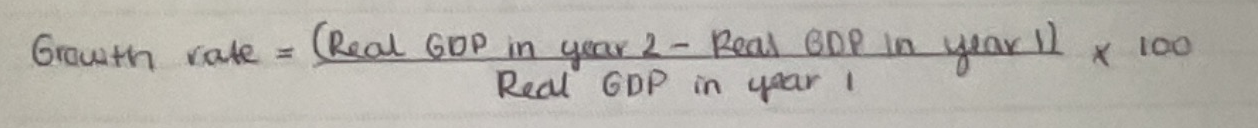 Growth rate = (Real GDP in year 2 - Real GDP in year 1) × 100
Real GDP in year 1